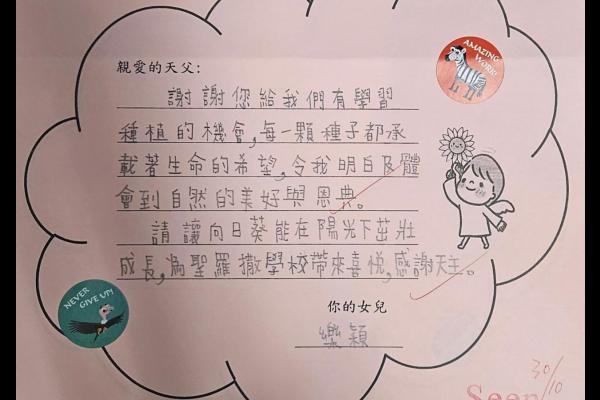 親愛的天父：
謝謝您給我們有學習
種植的機會，每一顆種子都承
載著生命的希望，令我明白及體
會到自然的美好與恩典。
請讓向日葵能在陽光下茁壯
成長，為聖羅撒學校帶來喜悅，感謝天主。
你的女兒
樂穎
AMAZING WORK!
NEVER GIVE UP!
Seen
30/10